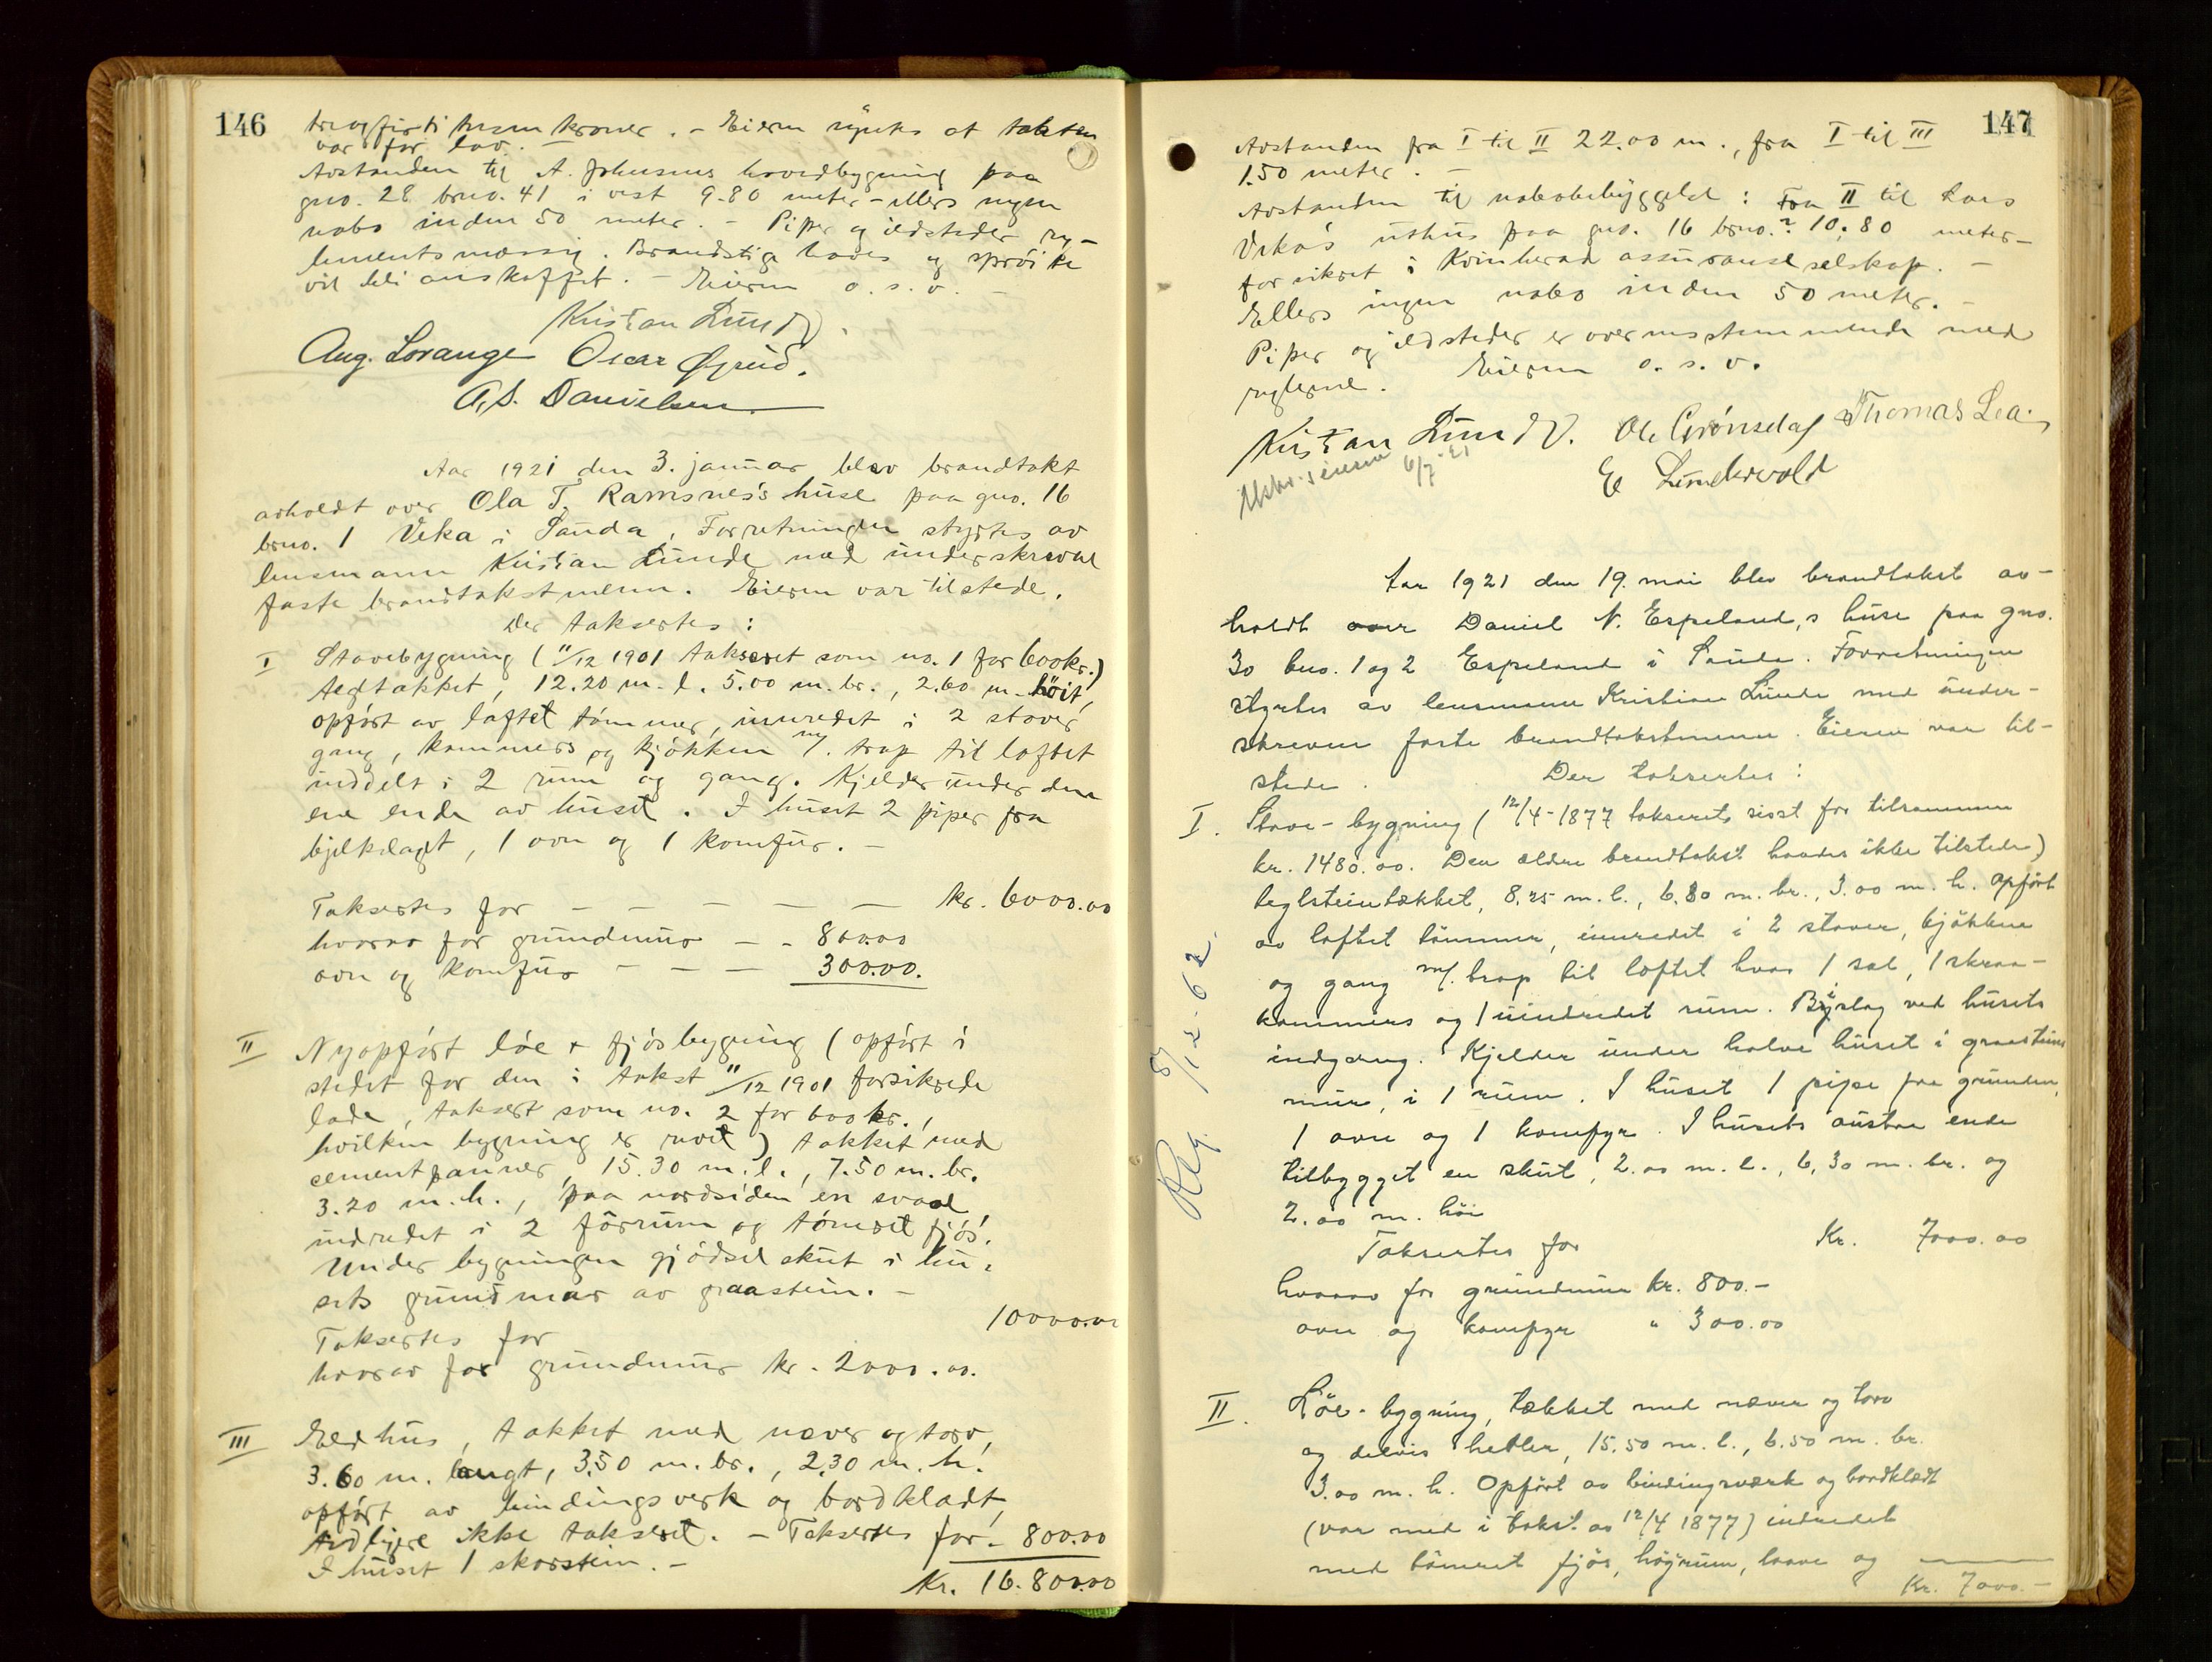 146
treogfirti tusen kroner. - Eieren syntes at taksten
var for lav. -
Avstanden til A. Johnsens hovedbygning paa
gno. 28 bruo. 41 i vest 9.80 meter - ellers ingen
nabo inden 50 meter. - Piper og ildsteder reg-
lementsmæssig. Brandstige haves og sprøite
vil bli anskaffet. - Eieren o.s.v. -
Kristian Lunde.
Aug. Lorange Oscar
A.S. Danielsen
Aar 1921 den 3. januar blev brandtakt
avholdt over Ola T. Ramsnes's huse paa gno. 16
bruo. 1 Veka i Sauda. Forretningen styrtes av
lensmann Kristian Lunde med underskrevne
faste brandtakstmenn. Eieren var tilstede.
Der taksertes:
I Stovebygning (11/12 1901 taksert som no. 1 for 600 kr.)
tegltækket, 12.20 m. l. 5.00 m. br., 2.60 m. höit,
opført av laftet tømmer, innredet i 2 stover
gang, kammers og kjøkken m/. trap til loftet
inddelt i 2 rum og gang. Kjelder under den
ene ende av huset. I huset 2 piper fra
bjelkelagt, 1 ovn og 1 komfur. -
Taksertes for - - - - - kr. 6000.00
hvorav for grundmur - - 800.00
ovn og komfur - - - 300.00.
II Nyopført løe & fjøsbygning (opført i
stedet for den i takst 11/12 1901 forsikrede
lade, taksert som no. 2 for 600 kr.,
hvilken bygning er revet) takket med
cementpanner, 15.30 m. l., 7.50 m. br.
3.20 m. h., paa nordsiden en sval
indredet i 2 fôrrum og tømret fjøs.
Under bygningen gjødsel skut i hu-
sets grundmur av graastein. -
Taksertes for 10000.00
hvorav for grundmur kr. 2000.00.
III Eldhus, takket med never og torv,
3.60 m. langt, 3.50 m. br., 2.30 m. h.
opført av bindingsverk og bordkladt,
tidligere ikke taksert. - Taksertes for - 800.00
I huset 1 skorstein. -
Kr. 16.800.00
147
Avstanden fra I til II 22.00 m., fra I til III
1.50 meter. -
Avstanden til nabobebyggelse: Fra II til Lars
Veka's uthus paa gno. 16 bruo. 2 10.80 meter -
forsikret i Kvinherad assuranseselskap. -
Ellers ingen nabo inden 50 meter. -
Piper og ildsteder er overensstemmende med
reglerne. Eieren o.s.v.
Kristian Lunde. Ole Grønsdal Thomas Lea.
E Lindkvold
Utskr. t eieren 6/7-21
Aar 1921 den 19. mai blev brandtakst av-
holdt over Daniel N. Espeland,s huse paa gno.
30 bno. 1 og 2 Espeland i Sauda. Forretningen
styrtes av lensmann Kristian Lunde med under-
skrevne faste brandtakstmenn. Eieren var til-
stede. Der taksertes:
I. Stove-bygning (12/4-1877 taksert sisst for tilsammen
kr. 1480.00. Den ældre brandtakst havdes ikke tilstede)
teglsteintækket, 8.25 m. l., 6.80 m. br., 3.00 m. h. Opført
av laftet tømmer, innredet i 2 stover, kjøkken
og gang m/. trap til loftet hvor 1 sal, 1 skraa-
kammers og 1 uindredet rum. Bislag ved husets
indgang. Kjelder under halve huset i graasteins
mur, i 1 rum. I huset 1 pipe fra grunden,
1 ovn og 1 komfyr. I husets austre ende
tilbygget en skut, 2.00 m. l., 6,30 m. br. og
2.00 m. høi
Taksertes for Kr. 7000.00
hvorav for grundmur kr. 800.-
ovn og komfyr " 300.00
Reg. 8/12-62.
II. Løe-bygning, tækket med næver og torv
og delvis heller, 15.50 m. l., 6.50 m. br.
3.00 m. h. Opført av bindingsværk og bordklædt
(var med i takst av 12/4 1877) indredet
med tømret fjøs, høyrum, laave og
Kr. 7000.-